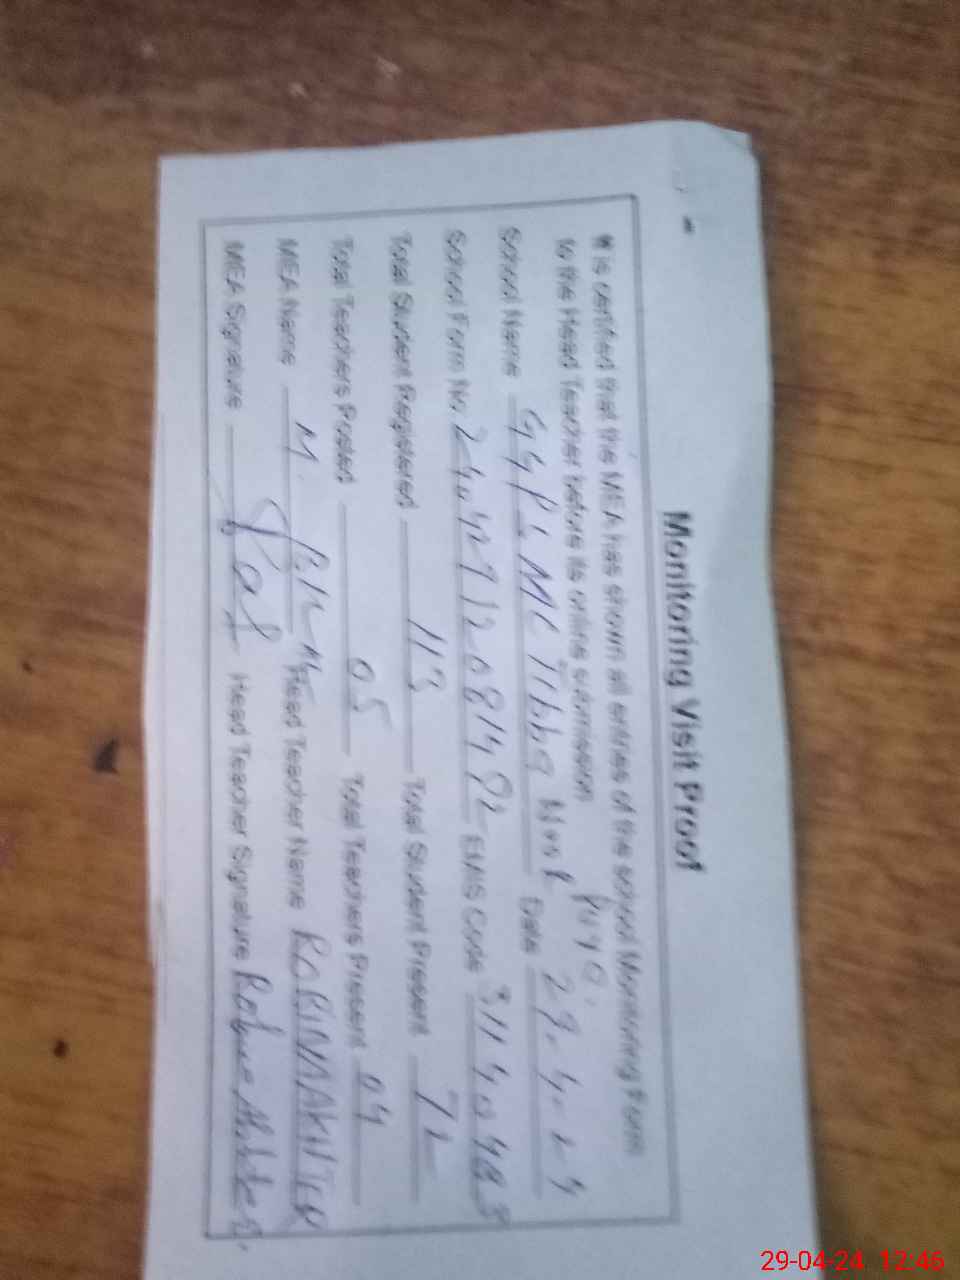 Monitoring Visit Proof
It is certified that the MEA has shown all entries of the school Monitoring Form
to the Head Teacher before its online submission
School Name GGPS MC Tibba Date 29.4.24
School Form No EMIS Code
Total Student Registered 113 Total Student Present 72
Total Teachers Posted 05 Total Teachers Present 04
MEA Name M. Head Teacher Name ROBINA AKHTER
MEA Signature Head Teacher Signature Robina Akhter
29-04-24 12:46